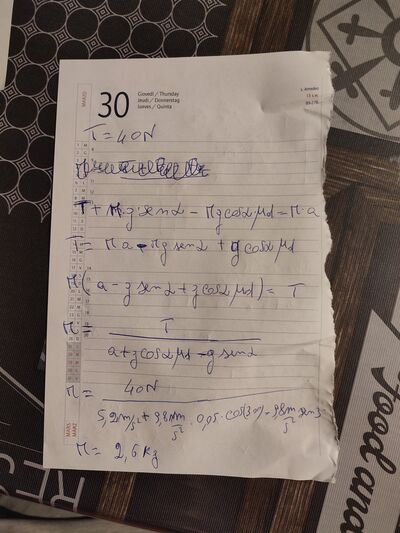 MARZO
30
Giovedì / Thursday
Jeudi / Donnerstag
Jueves / Quinta
s. Amedeo
13 s.w.
89-276
T = 40N
T + M·g·senα - Mg cosα μd = M·a
T = Ma - Mg senα + g cosα μd
M·(a - g senα + g cosα μd) = T
M = T
a + g cosα μd - g senα
M = 40N
5,2m/s² + 9,8m/s² · 0,05 · cos(30) - 9,8m/s² sen3
M = 2,6 Kg
food and
RE